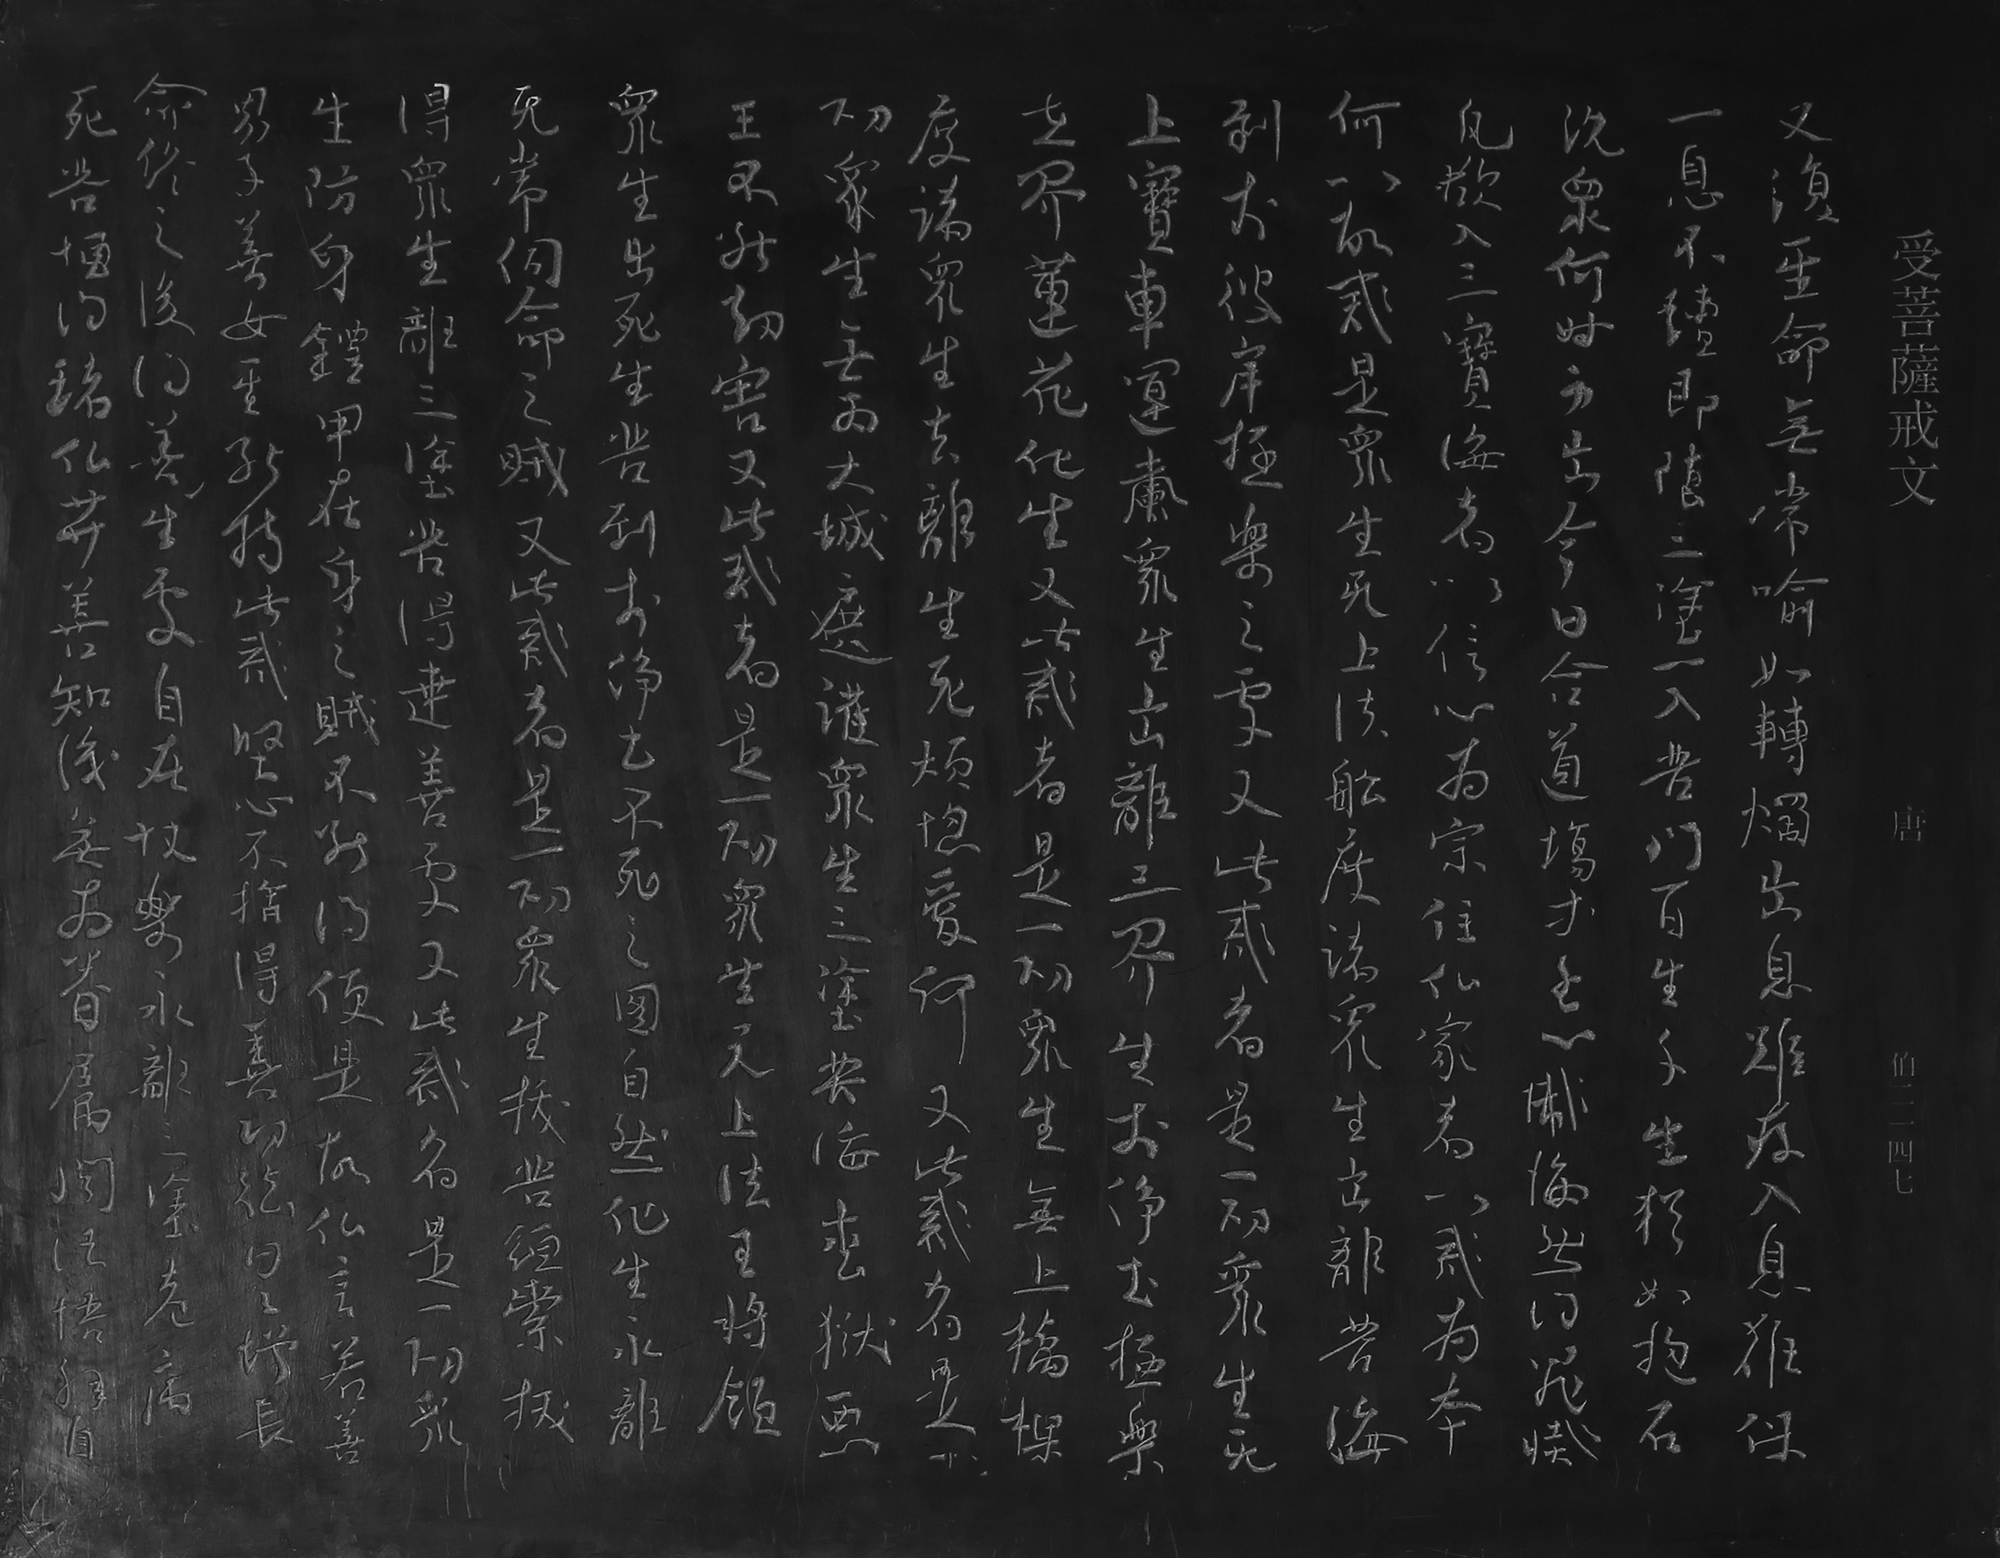 受菩薩戒文 唐 伯二一四七
又須至命無常喻如轉燭出息雖存入息難保
一息不續即墮三塗一入苦門百生千生猶如抱石
沈泉何時方出今日合道場求哀心懺悔然得罪懺
凡欲入三寶海者以信心為宗住仏家者以戒為本
何以故戒是眾生死上法船度諸眾生出離苦海
到於彼岸極樂之處又此戒者是一切眾生無
上寶車運載眾生出離三界生於淨土極樂
世界蓮花化生又此戒者是一切眾生無上橋樑
度諸眾生去離生死煩惱愛河又此戒者是一
切眾生無為大城遮護眾生三塗苦海地獄惡
王不能劫害又此戒者是一切眾生无上法王將領
眾生出死生苦到於淨土不死之國自然化生永離
死常伺命之賊又此戒者是一切眾生拔苦繩索拔
得眾生離三塗苦得達善處又此戒者是一切眾
生防身鎧甲在身之賊不能得便是故仏言若善
男子善女至能持此戒堅心不捨得善功德日日增長
命終之後得善生處自在快樂永離三塗免離
死苦恒得諸仏菩善知識無為眷屬聞法悟解自